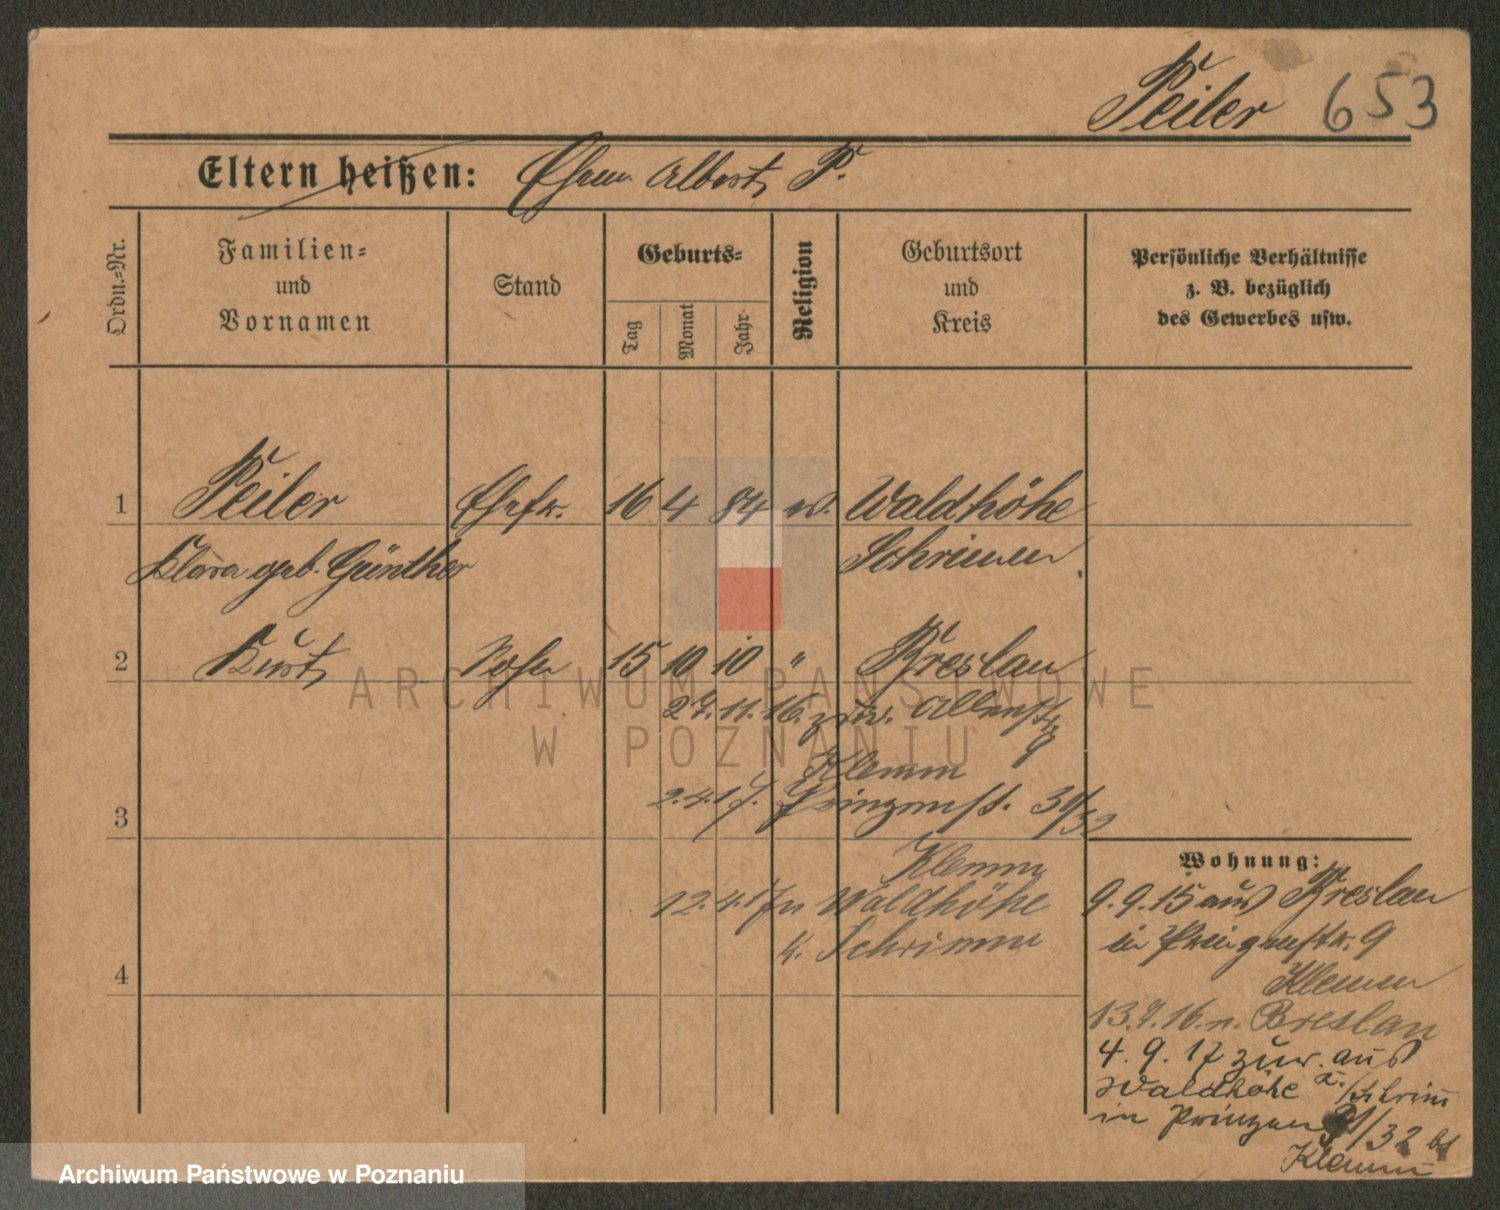 Peiler 653
Eltern heißen: Ehem. Albert P.
Ordn.-Nr.
Familien-
und
Vornamen
Stand
Geburts-
Tag
Monat
Jahr
Religion
Geburtsort
und
Kreis
Persönliche Verhältnisse
z. B. bezüglich
des Gewerbes usw.
1 Peiler Ehefr. 16 4 84 ev. Waldhöhe
Klara geb. Günther Schrimm
2 Kurt Sohn 15 10 10 " Breslau
27.11.16. zur. Allenst
Klemm
2.4.17. Prinzenst. 31/32
3
Klemm
12.4.17 n Waldhöhe
K. Schrimm
4
Wohnung:
9.9.15 aus Breslau
in Prinzenstr. 9
Klemm
13.7.16. n. Breslau
4.9.17 zur. aus
Waldhöhe K. Schrim̄
in Prinzen 31/32 bei
Klemm̄
ARCHIWUM PAŃSTWOWE
W POZNANIU
Archiwum Państwowe w Poznaniu